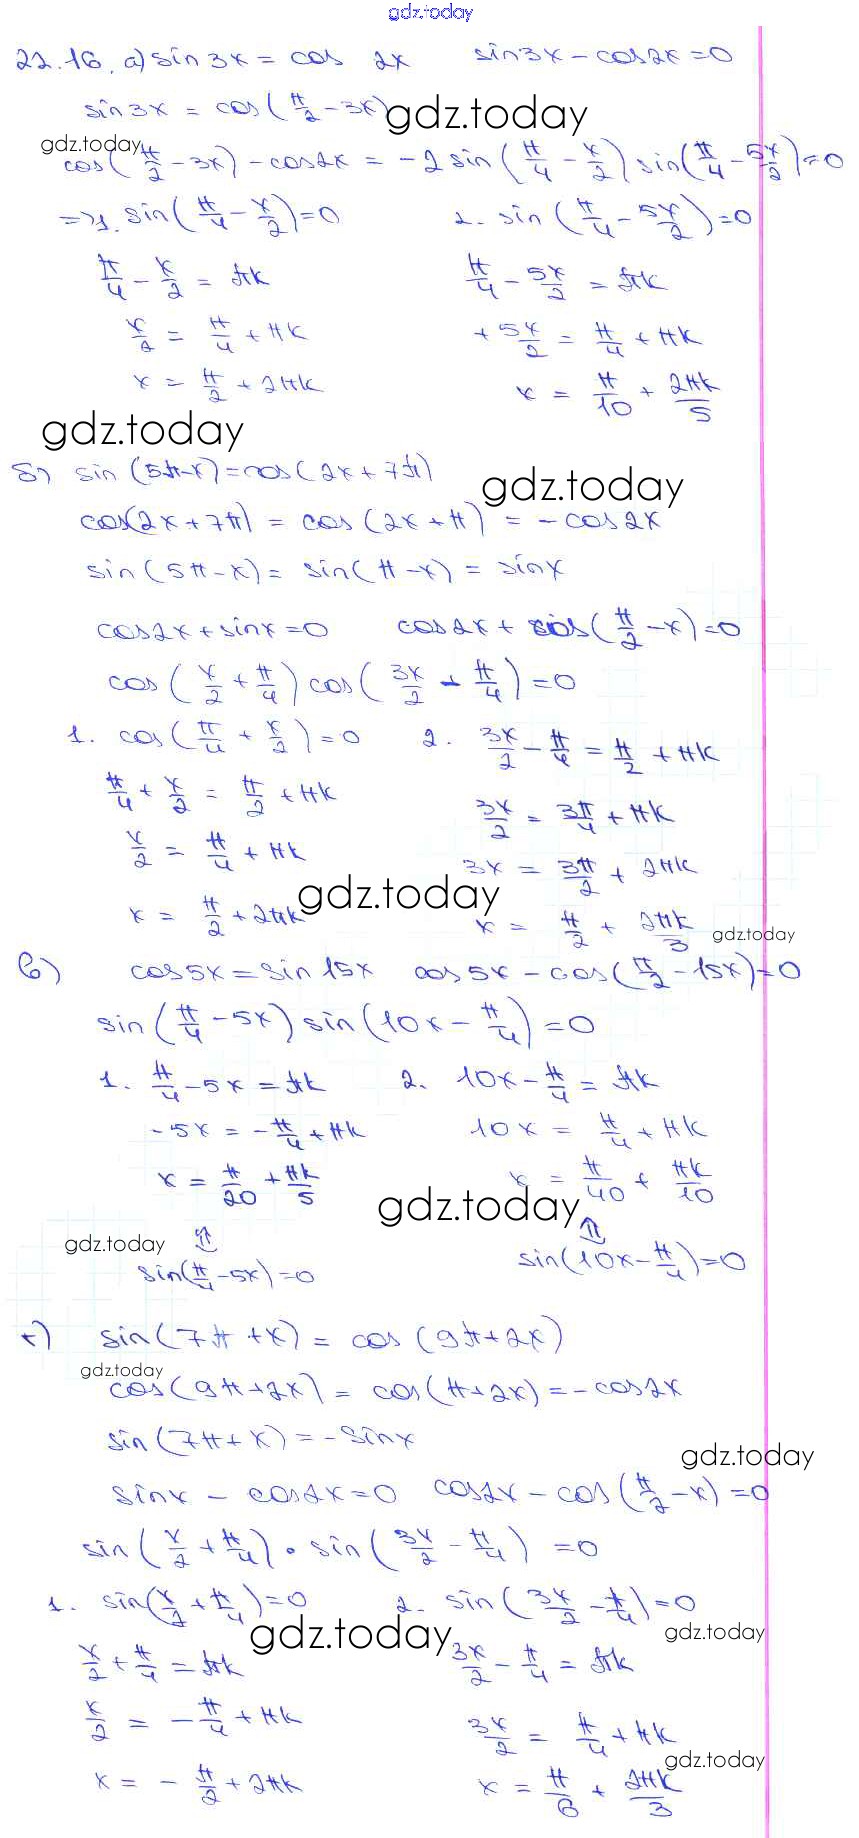 gdz.today
22.16. а) sin 3x = cos 2x    sin 3x − cos 2x = 0
sin 3x = cos(π/2 − 3x)
gdz.today
gdz.today
cos(π/2 − 3x) − cos 2x = −2 sin(π/4 − x/2) sin(π/4 − 5x/2) = 0
=> 1. sin(π/4 − x/2) = 0    2. sin(π/4 − 5x/2) = 0
π/4 − x/2 = πk    π/4 − 5x/2 = πk
x/2 = π/4 + πk    +5x/2 = π/4 + πk
x = π/2 + 2πk    x = π/10 + 2πk/5
gdz.today
б) sin(5π−x) = cos(2x + 7π)
gdz.today
cos(2x + 7π) = cos(2x + π) = −cos 2x
sin(5π − x) = sin(π − x) = sin x
cos 2x + sin x = 0    cos 2x + cos(π/2 − x) = 0
cos(x/2 + π/4) cos(3x/2 − π/4) = 0
1. cos(π/4 + x/2) = 0    2. 3x/2 − π/4 = π/2 + πk
π/4 + x/2 = π/2 + πk    3x/2 = 3π/4 + πk
x/2 = π/4 + πk    3x = 3π/2 + 2πk
gdz.today
x = π/2 + 2πk    x = π/2 + 2πk/3
gdz.today
в) cos 5x = sin 15x    cos 5x − cos(π/2 − 15x) = 0
sin(π/4 − 5x) sin(10x − π/4) = 0
1. π/4 − 5x = πk    2. 10x − π/4 = πk
−5x = −π/4 + πk    10x = π/4 + πk
x = π/20 + πk/5    x = π/40 + πk/10
gdz.today
gdz.today
⇑    ⇑
sin(π/4 − 5x) = 0    sin(10x − π/4) = 0
г) sin(7π + x) = cos(9π + 2x)
gdz.today
cos(9π + 2x) = cos(π + 2x) = −cos 2x
sin(7π + x) = −sin x
gdz.today
sin x − cos 2x = 0    cos 2x − cos(π/2 − x) = 0
sin(x/2 + π/4) · sin(3x/2 − π/4) = 0
1. sin(x/2 + π/4) = 0    2. sin(3x/2 − π/4) = 0
gdz.today
gdz.today
x/2 + π/4 = πk    3x/2 − π/4 = πk
x/2 = −π/4 + πk    3x/2 = π/4 + πk
gdz.today
x = −π/2 + 2πk    x = π/6 + 2πk/3